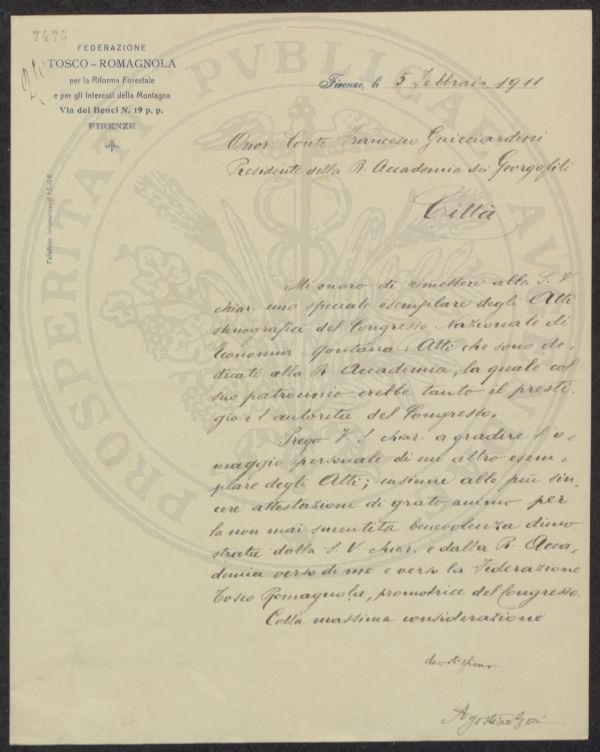 7475
FEDERAZIONE
TOSCO-ROMAGNOLA
per la Riforma Forestale
e per gli Interessi della Montagna
Via dei Benci N. 19 p. p.
FIRENZE
Telefono Interurbano 12-98
PROSPERITATI PUBLICAE AU
Firenze, li 5 Febbraio 1911
Onor. Conte Francesco Guicciardini
Presidente della R. Accademia dei Georgofili
Città
Mi onoro di rimettere alla S. V.
chiar. uno speciale esemplare degli Atti
stenografici del Congresso Nazionale di
Economia Montana. Atti che sono de-
dicati alla R. Accademia, la quale col
suo patrocinio crebbe tanto il presti-
gio e l'autorità del Congresso.
Prego V. S. chiar. a gradire l'o-
maggio personale di un altro esem-
plare degli Atti; insieme alle più sin-
cere attestazioni di grato animo per
la non mai smentita benevolenza dimo
strata dalla S. V. chiar. e dalla R. Acca-
demia verso di me e verso la Federazione
Tosco Romagnola, promotrice del Congresso.
Colla massima considerazione
devotissimo
Agostino